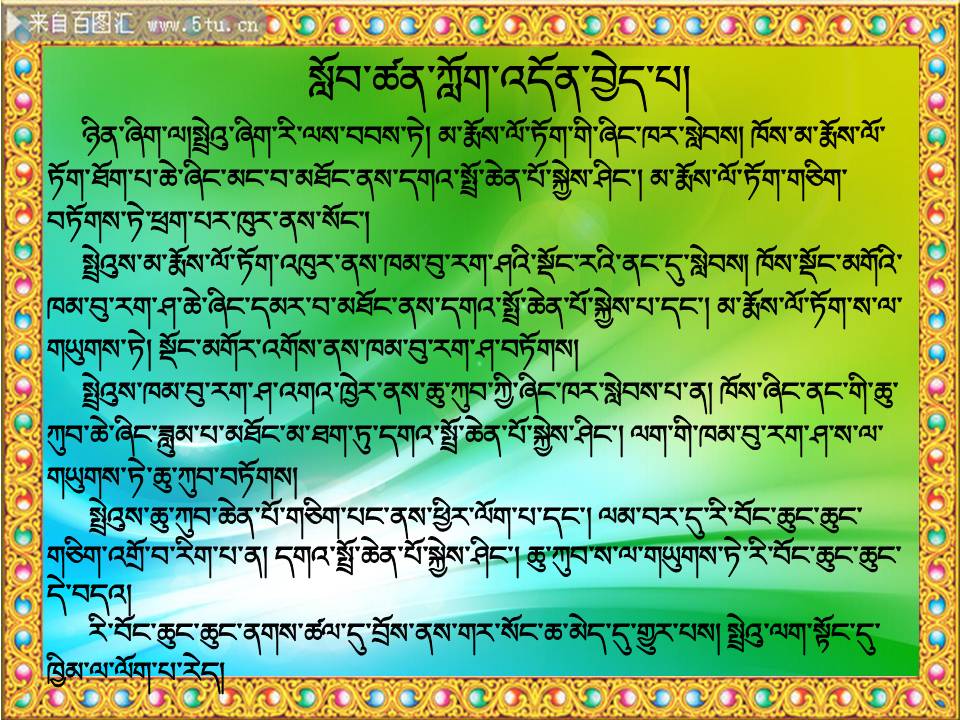 来自百图汇 www.5tu.cn
སློབ་ཚན་ཀློག་འདོན་བྱེད་པ།
ཉིན་ཞིག་ལ།སྤྲེའུ་ཞིག་རི་ལས་བབས་ཏེ། མ་རྨོས་ལོ་ཏོག་གི་ཞིང་ཁར་སླེབས། ཁོས་མ་རྨོས་ལོ་
ཏོག་ཐོག་པ་ཆེ་ཞིང་མང་བ་མཐོང་ནས་དགའ་སྤྲོ་ཆེན་པོ་སྐྱེས་ཤིང་། མ་རྨོས་ལོ་ཏོག་གཅིག་
བཏོགས་ཏེ་ཕྲག་པར་ཁུར་ནས་སོང་།
སྤྲེའུས་མ་རྨོས་ལོ་ཏོག་འཁུར་ནས་ཁམ་བུ་རག་ཤའི་སྡོང་རའི་ནང་དུ་སླེབས། ཁོས་སྡོང་མགོའི་
ཁམ་བུ་རག་ཤ་ཆེ་ཞིང་དམར་བ་མཐོང་ནས་དགའ་སྤྲོ་ཆེན་པོ་སྐྱེས་པ་དང་། མ་རྨོས་ལོ་ཏོག་ས་ལ་
གཡུགས་ཏེ། སྡོང་མགོར་འགོས་ནས་ཁམ་བུ་རག་ཤ་བཏོགས།
སྤྲེའུས་ཁམ་བུ་རག་ཤ་འགའ་ཁྱེར་ནས་ཆུ་ཀུབ་ཀྱི་ཞིང་ཁར་སླེབས་པ་ན། ཁོས་ཞིང་ནང་གི་ཆུ་
ཀུབ་ཆེ་ཞིང་ཟླུམ་པ་མཐོང་མ་ཐག་ཏུ་དགའ་སྤྲོ་ཆེན་པོ་སྐྱེས་ཤིང་། ལག་གི་ཁམ་བུ་རག་ཤ་ས་ལ་
གཡུགས་ཏེ་ཆུ་ཀུབ་བཏོགས།
སྤྲེའུས་ཆུ་ཀུབ་ཆེན་པོ་གཅིག་པང་ནས་ཕྱིར་ལོག་པ་དང་། ལམ་བར་དུ་རི་བོང་ཆུང་ཆུང་
གཅིག་འགྲོ་བ་རིག་པ་ན། དགའ་སྤྲོ་ཆེན་པོ་སྐྱེས་ཤིང་། ཆུ་ཀུབ་ས་ལ་གཡུགས་ཏེ་རི་བོང་ཆུང་ཆུང་
དེ་བདའ།
རི་བོང་ཆུང་ཆུང་ནགས་ཚལ་དུ་བྲོས་ནས་གར་སོང་ཆ་མེད་དུ་གྱུར་པས། སྤྲེའུ་ལག་སྟོང་དུ་
ཁྱིམ་ལ་ལོག་པ་རེད།